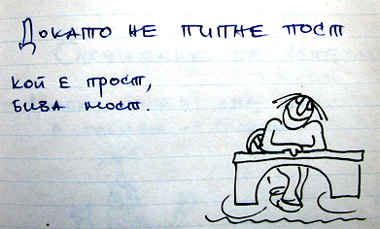 Докато не пипне пост
кой е прост,
бива мост.